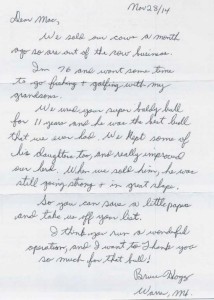 Nov 28/14
Dear Mac,
We sold our cows a month
ago so are out of the cow business.
I'm 76 and want some time
to go fishing & golfing with my
grandsons.
We used your super baldy bull
for 11 years and he was the best bull
that we ever had. We kept some of
his daughters too, and really improved
our herd. When we sold him, he was
still going strong & in great shape.
So you can save a little paper
and take us off your list.
I think you run a wonderful
operation, and I want to thank you
so much for that bull!
Bruce